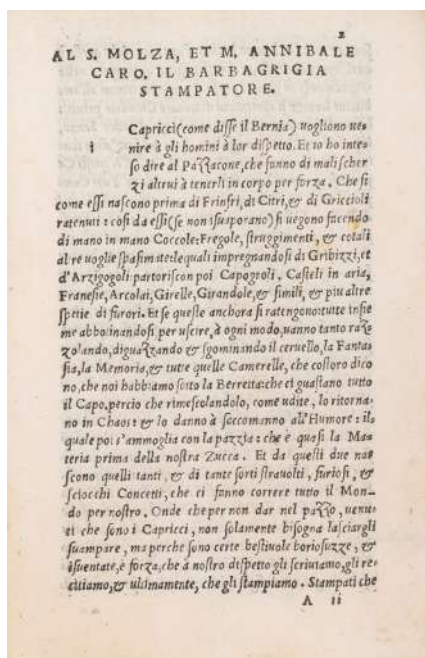 2
AL S. MOLZA, ET M. ANNIBALE
CARO. IL BARBAGRIGIA
STAMPATORE.
i Capricci (come disse il Bernia) uogliono ue=
nire à gli homini à lor dispetto. Et io ho inte=
so dire al Pazzacone, che fanno di mali scher
zi altrui à tenerli in corpo per forza. Che si
come essi nascono prima di Frinfri, di Citri, & di Griccioli
ratenuti: cosi da essi (se non isuaporano) si uegono facendo
di mano in mano Coccole: Fregole, struggimenti, & cotali
altre uoglie spasimate: lequali impregnandosi di Gribizzi, et
d'Arzigogoli partoriscon poi Capogroli, Casteli in aria,
Franesie, Arcolai, Girelle, Girandole, & simili, & piu altre
spetie di furori. Et se queste anchora si ratengono: tutte insie
me abbotinandosi, per uscire, à ogni modo, uanno tanto raz
zolando, diguazzando & sgominando il ceruello, la Fantas
sia, la Memoria, & tutte quelle Camerelle, che costoro dico
no, che noi habbiamo sotto la Berretta: che ci guastano tutto
il Capo, percio che rimescolandolo, come udite, lo ritorna=
no in Chaos: & lo danno à soccomanno all'Humore: il=
quale poi s'ammoglia con la pazzia: che è quasi la Ma=
teria prima della nostra Zucca. Et da questi due nas
scono quelli tanti, & di tante sorti strauolti, furiosi, &
sciocchi Concetti, che ci fanno correre tutto il Mon=
do per nostro. Onde che per non dar nel pazzo, uenu=
ti che sono i Capricci, non solamente bisogna lasciargli
suampare, ma perche sono certe bestiuole boriosuzze, &
isuentate, è forza, che à nostro dispetto gli scriuiamo, gli re=
citiamo, & ultimamente, che gli stampiamo. Stampati che
A ii